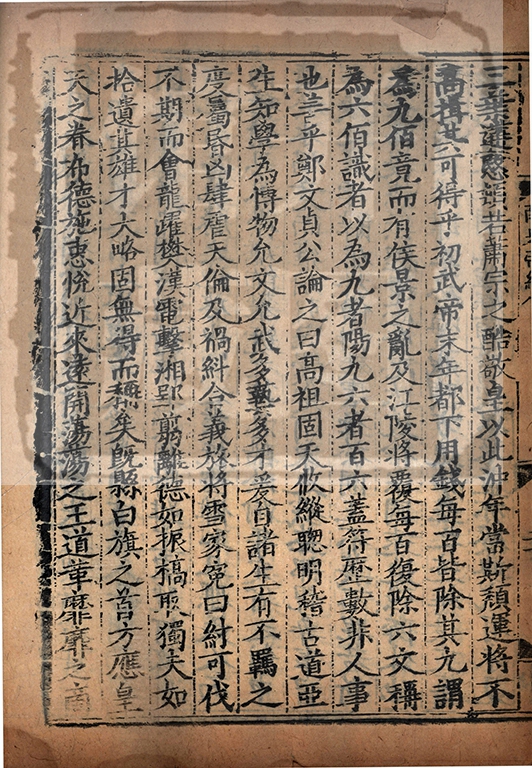 三葉遘愍頗若蕭宗之酷敬皇以此沖年當斯頹運將不
高揖其可得乎初武帝末年都下用錢每百皆除其九謂
爲九佰竟而有侯景之亂及江陵將覆每百復除六文稱
為六佰識者以為九者陽九六者百六蓋符歷數非人事
也善乎鄭文貞公論之曰高祖固天攸縱聰明稽古道亞
生知學為博物允文允武多藝多才爰自諸生有不羈之
度屬昏凶肆虐天倫及禍糾合義旅將雪家冤曰紂可伐
不期而會龍躍樊漢電擊湘郢翦離德如振槁取獨夫如
拾遺其雄才大略固無得而稱矣旣縣白旗之首方應皇
天之眷布德施惠悅近來遠開蕩蕩之王道革靡靡之商